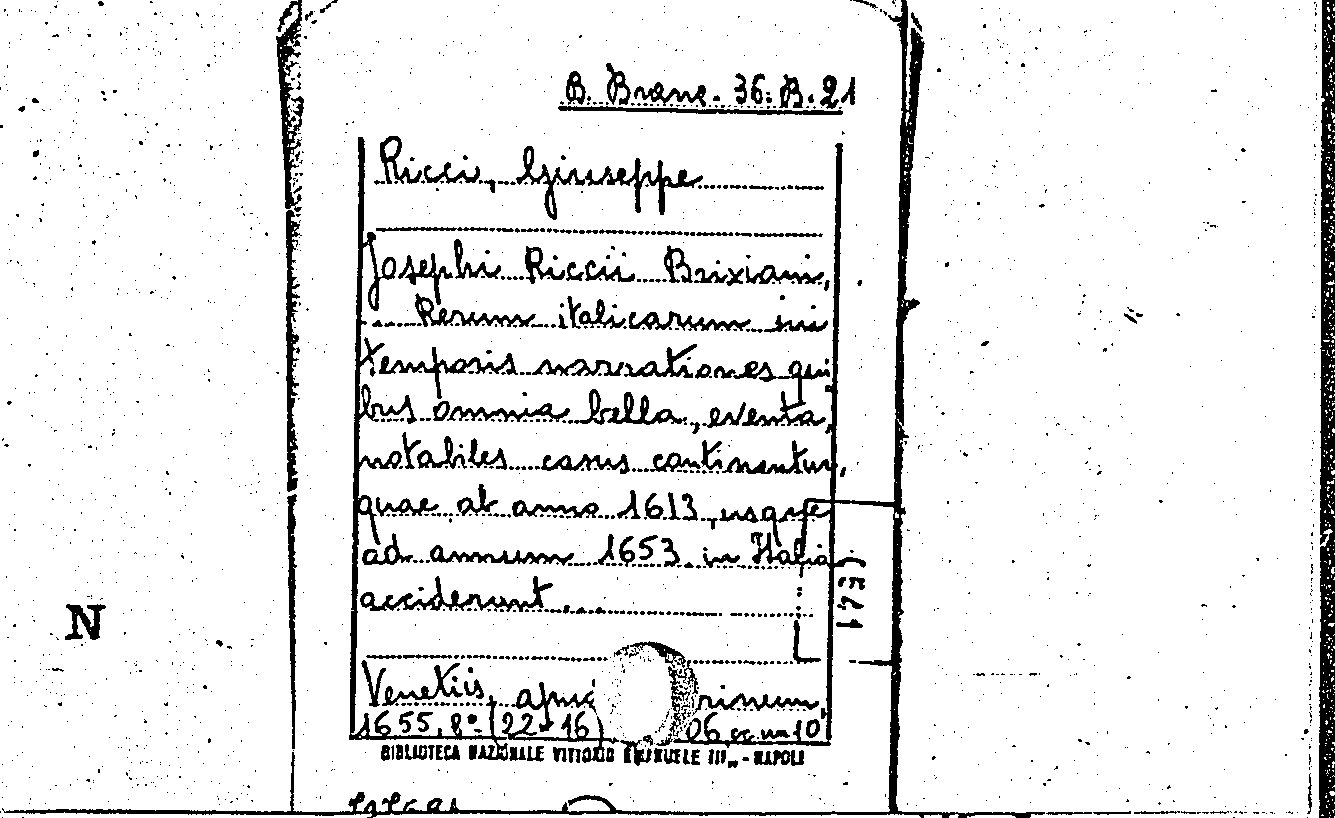 B. Branc. 36. B. 21
Ricci, Giuseppe
Josephi Riccii Brixiani,
... Rerum italicarum sui
temporis narrationes qui
bus omnia bella, eventa,
notabiles casus continentur,
quae ab anno 1613 usque
ad annum 1653 in Italia
acciderunt...
Venetiis, apu rinum,
1655, 8°. (22+16) 06, cc nn 10
BIBLIOTECA NAZIONALE VITTORIO EMANUELE III„ - NAPOLI
N